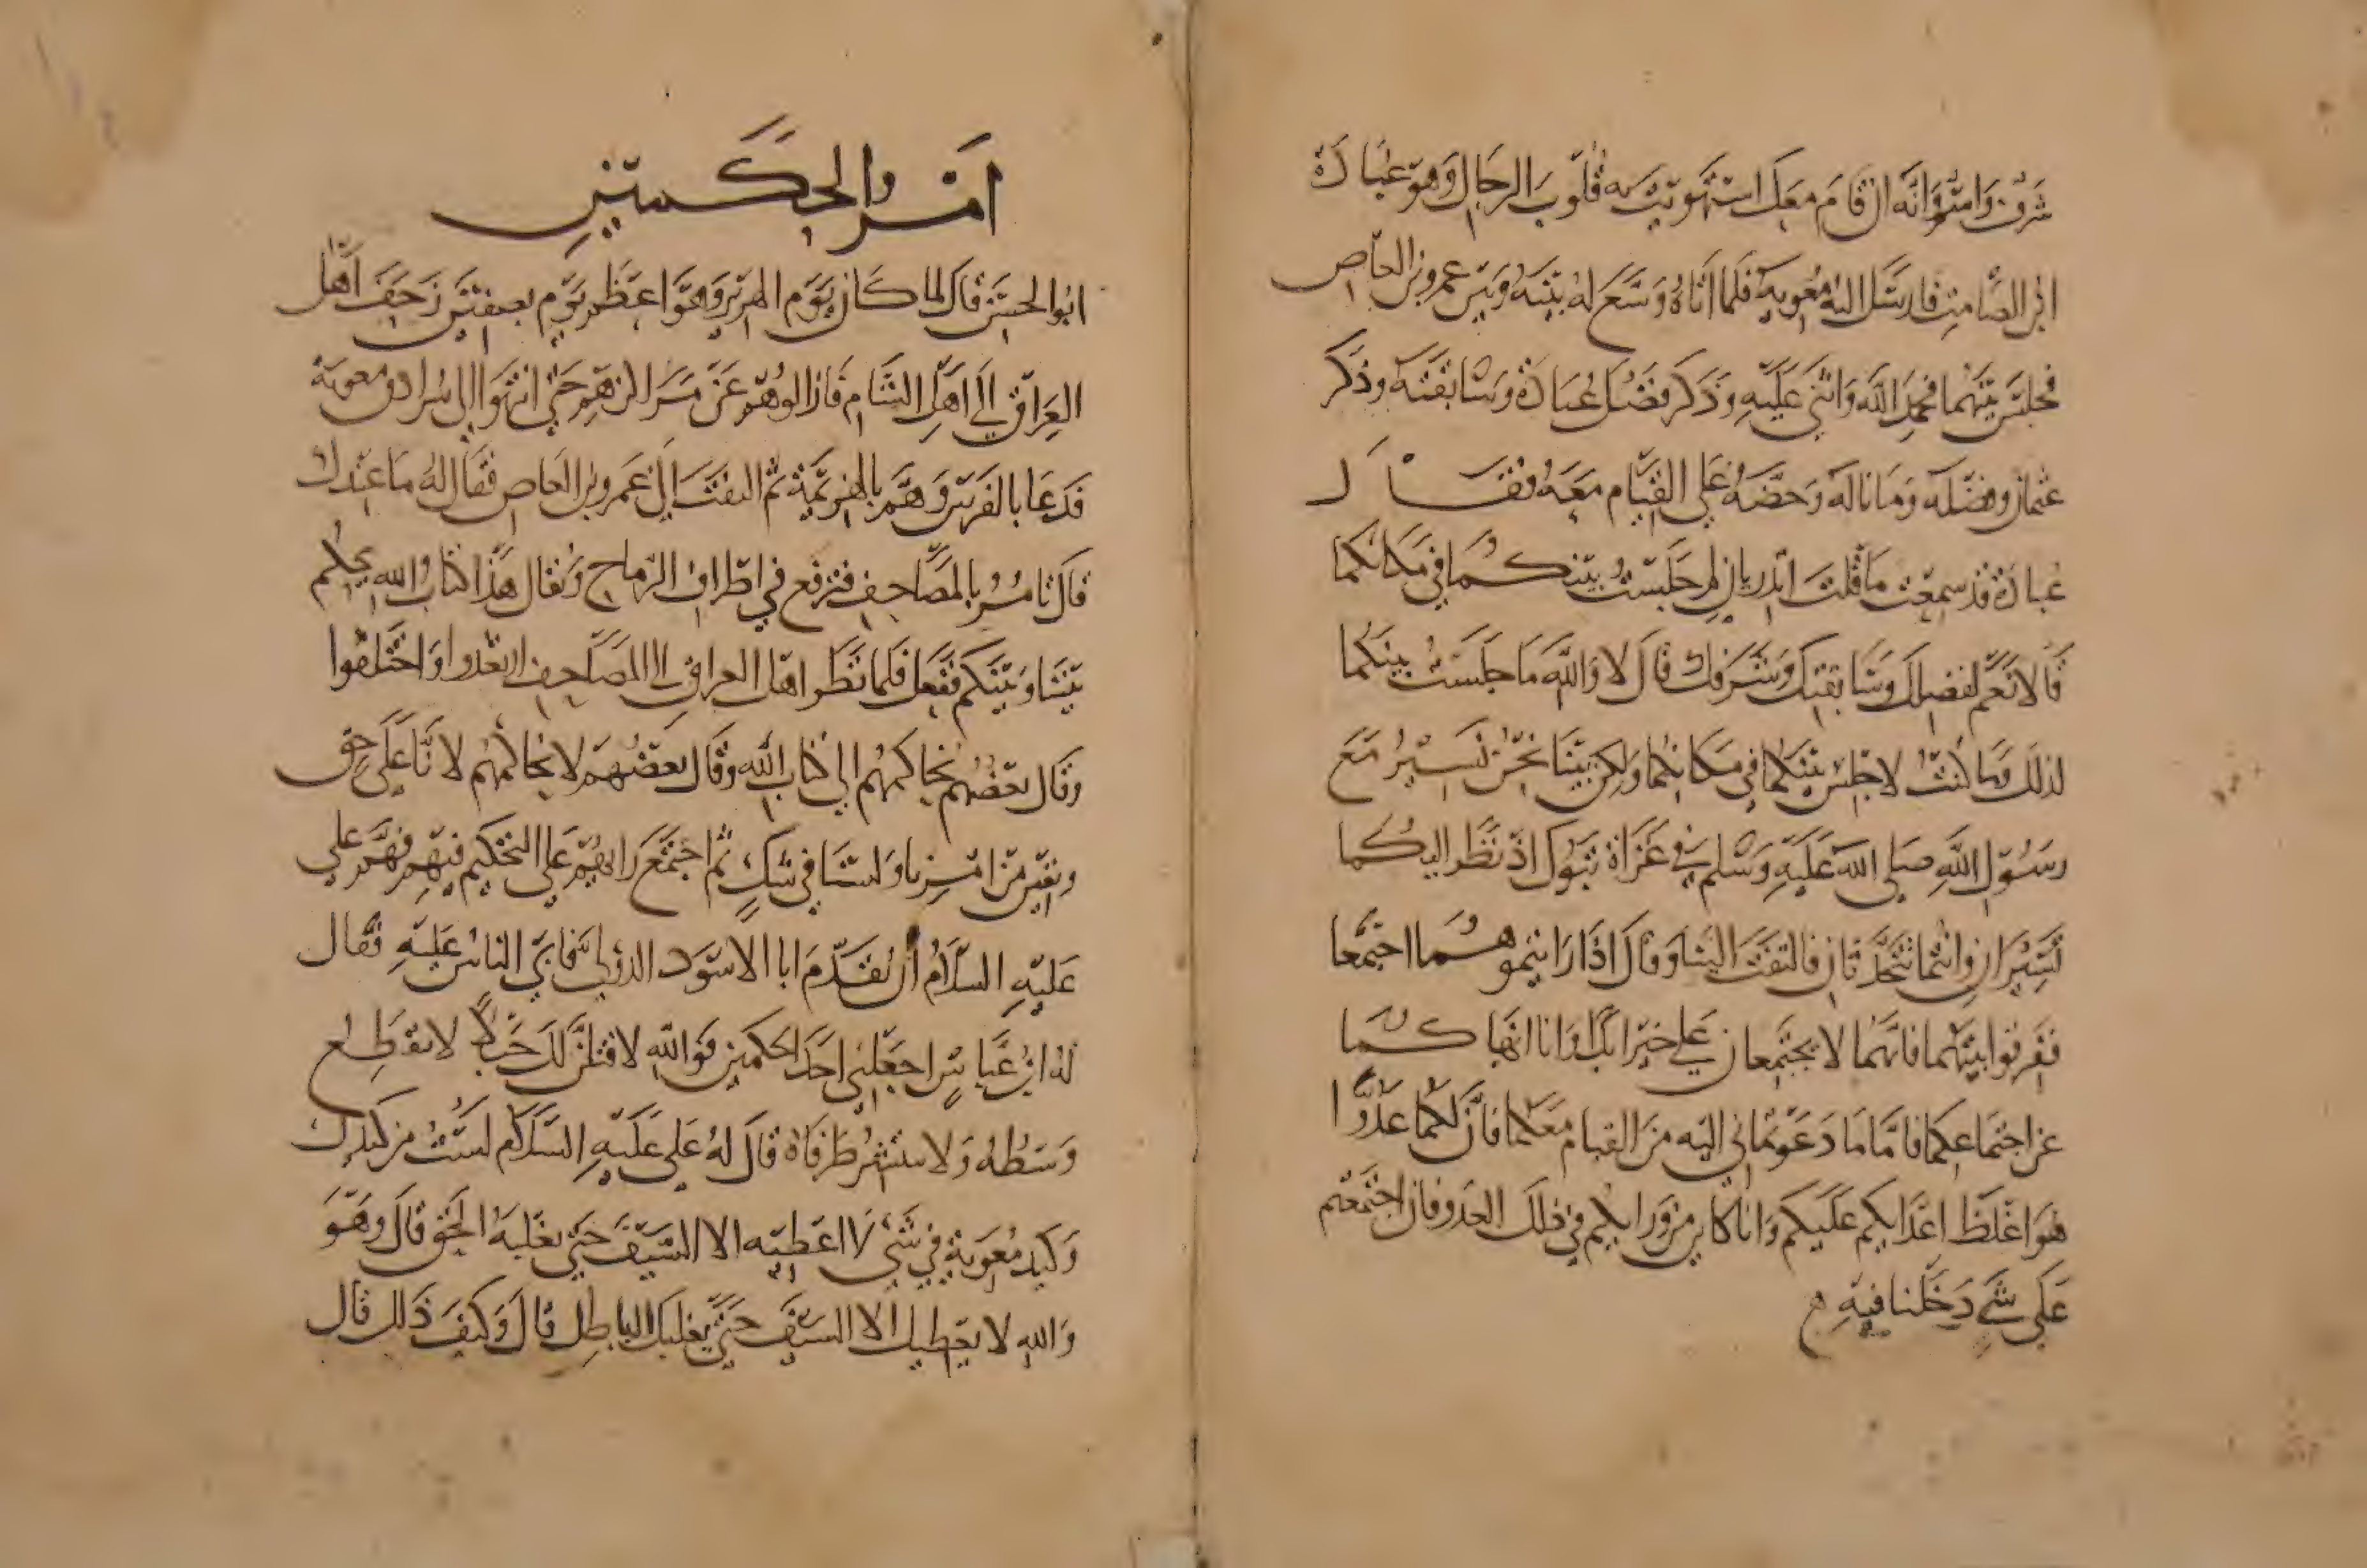 شرف واسم وانه ان قام معك استهويت به قلوب الرجال وهو عبادة
ابن الصامت فارسل اليه معوية فلما اتاه وسع له بينه وبين عمرو بن العاص
فجلس بينهما فحمد الله واثنى عليه وذكر فضل عبادة وسابقته وذكر
عثمان وفضله وما ناله وحضه على القيام معه فقال
عبادة قد سمعت ما قلت اتدريان لم جلست بينكما في مكانكما
قالا نعم لفضلك وسابقتك وشرفك قال لا والله ما جلست بينكما
لذلك وما كنت لاجلس بينكما في مكانكما ولكن بينا نحن نسير مع
رسول الله صلى الله عليه وسلم في غزاة تبوك اذ نظر اليكما
تسيران وانتما تتحدثان فالتفت الينا وقال اذا رايتموهما اجتمعا
ففرقوا بينهما فانهما لا يجتمعان على خير ابدا وانا انهاكما
عن اجتماعكما فاما ما دعوتماني اليه من القيام معكما فان لكما عدوا
هو اغلظ اعدايكم عليكم وانا كاين من ورايكم في ذلك العدو فان اجتمعتم
على شي دخلنا فيه
امر الحكمين
ابو الحسن قال لما كان يوم الهرير وهو اعظم يوم بصفين زحف اهل
العراق الى اهل الشام فازالوهم عن مراكزهم حتى انتهوا الى سرادق معوية
فدعا بالفرس وهم بالهزيمة ثم التفت الى عمرو بن العاص فقال له ما عندك
قال تامر بالمصاحف فترفع في اطراف الرماح ويقال هذا كتاب الله يحكم
بيننا وبينكم ففعل فلما نظر اهل العراق الى المصاحف ارتعدوا واختلفوا
وقال بعضهم نحاكمهم الى كتاب الله وقال بعضهم لا نحاكمهم لانا على حق
ويقين من امرنا ولسنا في شك ثم اجتمع رايهم على التحكيم فيهم فهم علي
عليه السلام ان يقدم ابا الاسود الدؤلي فابى الناس عليه فقال
له ابن عباس اجعلني احد الحكمين فوالله لافتلن لك حبلا لا يقطع
وسطه ولا ينشر طرفاه قال له علي عليه السلام لست من كيدك
وكيد معوية في شيء لا اعطيه الا السيف حتى يغلبه الحق قال وهو
والله لا يعطيك الا السيف حتى يغلبك الباطل قال وكيف ذلك قال